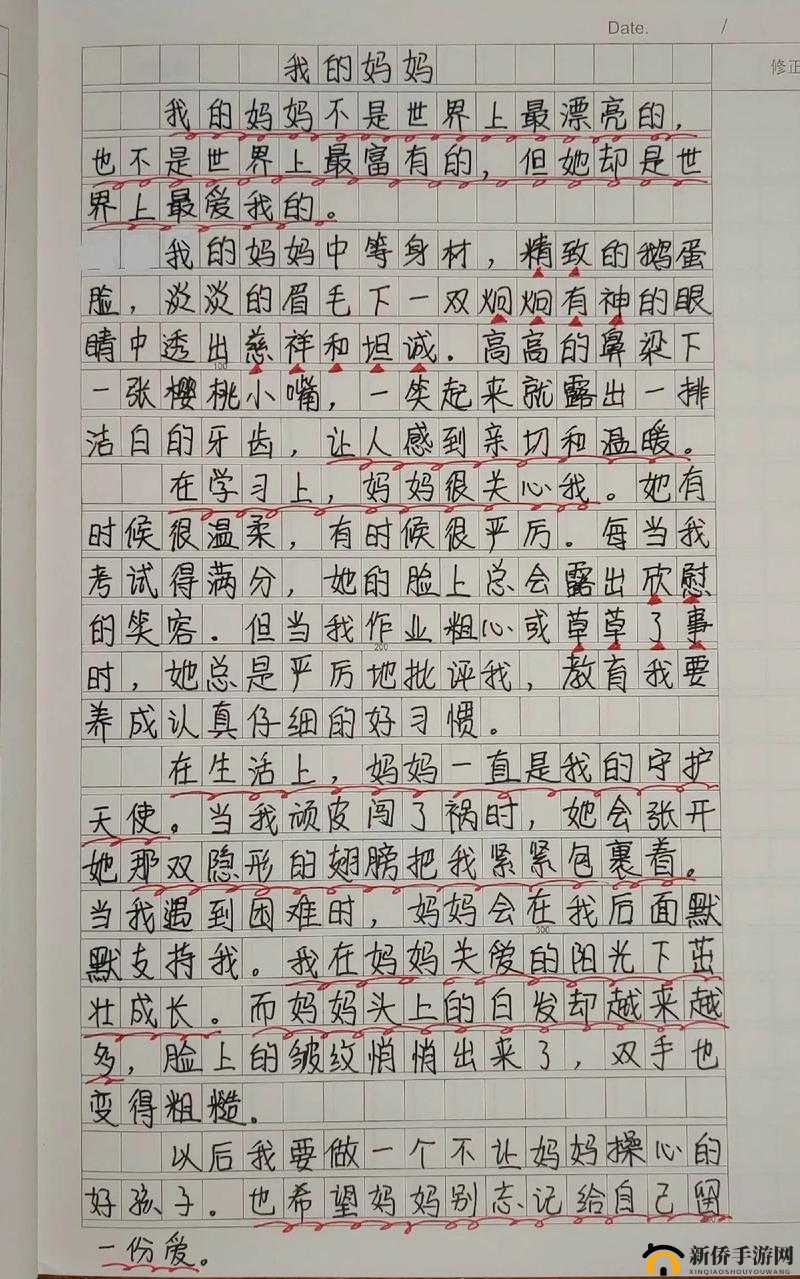 Date. /
修正
我的妈妈
我的妈妈不是世界上最漂亮的,
也不是世界上最富有的,但她却是世
界上最爱我的。
我的妈妈中等身材,精致的鹅蛋
脸,淡淡的眉毛下一双炯炯有神的眼
睛中透出慈祥和坦诚。高高的鼻梁下
100
一张樱桃小嘴,一笑起来就露出一排
洁白的牙齿,让人感到亲切和温暖。
在学习上,妈妈很关心我。她有
时候很温柔,有时候很严厉。每当我
考试得满分,她的脸上总会露出欣慰
的笑容。但当我作业粗心或草草了事
200
时,她总是严厉地批评我,教育我要
养成认真仔细的好习惯。
在生活上,妈妈一直是我的守护
天使。当我顽皮闯了祸时,她会张开
她那双隐形的翅膀把我紧紧包裹着。
当我遇到困难时,妈妈会在我后面默
300
默支持我。我在妈妈关爱的阳光下茁
壮成长。而妈妈头上的白发却越来越
多,脸上的皱纹悄悄出来了,双手也
变得粗糙。
以后我要做一个不让妈妈操心的
好孩子。也希望妈妈别忘记给自己留
一份爱。
新侨手游网
XINQIAOSHOUYOUWANG